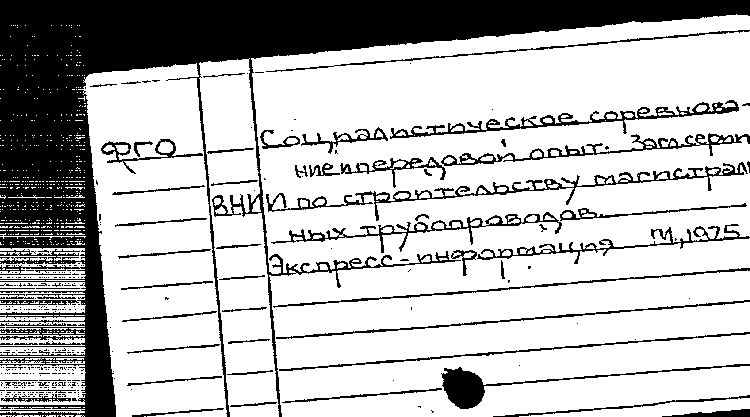 ФГО
Социалистическое соревнова-
ние и передовой опыт. Загл. серии
ВНИИ по строительству магистраль
ных трубопроводов.
Экспресс-информация М., 1975